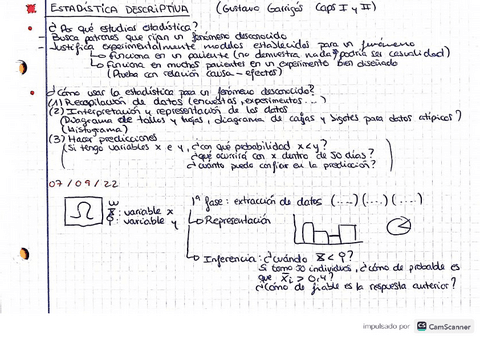 ESTADÍSTICA DESCRIPTIVA (Gustavo Garrigós Caps I y II)
¿Por qué estudiar estadística?
- Busca patrones que rijan un fenómeno desconocido
- Justifica experimentalmente modelos establecidos para un fenómeno
Funciona en un paciente (no demuestra nada, podría ser casualidad)
Funciona en muchos pacientes en un experimento bien diseñado
(Prueba con relación causa-efectos)
¿Cómo usar la estadística para un fenómeno desconocido?
(1) Recopilación de datos (encuestas, experimentos...)
(2) Interpretación y representación de los datos
(Diagrama de tallos y hojas, diagrama de cajas y bigotes para datos atípicos?
(Histograma)
(3) Hacer predicciones
(Si tengo variables x e y, ¿con qué probabilidad x<y?
¿qué ocurrirá con x dentro de 50 días?
¿cuánto puede confiar en la predicción?
07/09/22
Ω
: variable x
: variable y
1ª fase: extracción de datos (...) (...) (...)
Representación
Inferencia: ¿cuándo
Si tomo 50 individuos, ¿cómo de probable es
que > 0,4?
¿Cómo de fiable es la respuesta anterior?
impulsado por CS CamScanner